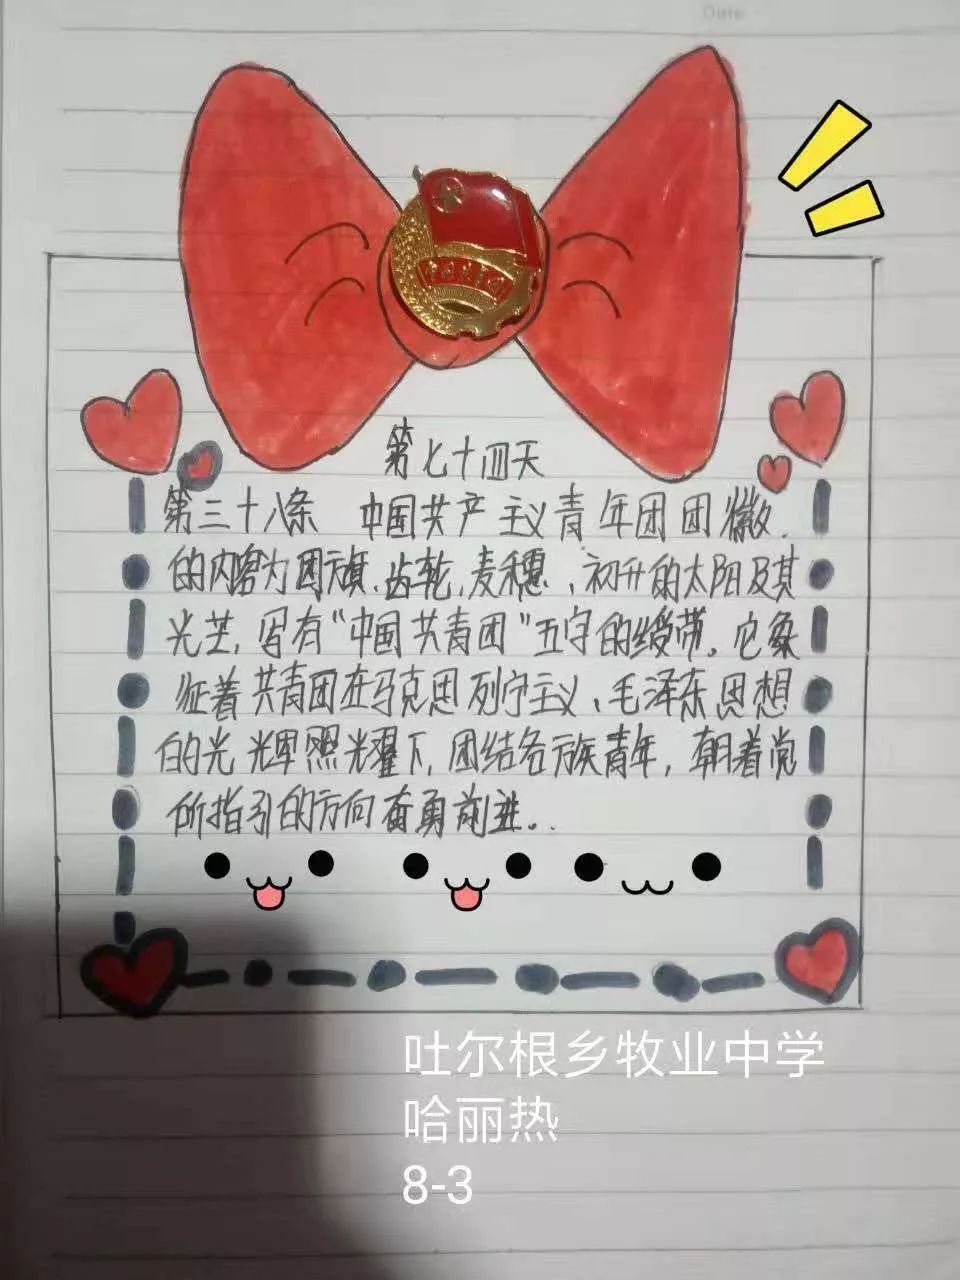 Date
中国共青团
第七十四天
第三十八条 中国共产主义青年团团徽
的内容为团旗、齿轮、麦穗、初升的太阳及其
光芒,写有“中国共青团”五字的绶带。它象
征着共青团在马克思列宁主义、毛泽东思想
的光辉照光耀下,团结各族青年,朝着党
所指引的方向奋勇前进。.
吐尔根乡牧业中学
哈丽热
8-3